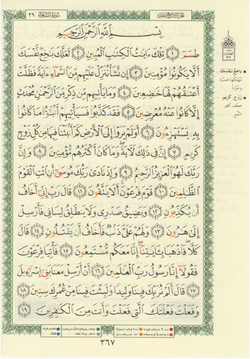 بِسْمِ ٱللَّهِ ٱلرَّحْمَٰنِ ٱلرَّحِيمِ
طسٓمٓ ١ تِلْكَ ءَايَٰتُ ٱلْكِتَٰبِ ٱلْمُبِينِ ٢ لَعَلَّكَ بَٰخِعٌ نَّفْسَكَ
أَلَّا يَكُونُوا۟ مُؤْمِنِينَ ٣ إِن نَّشَأْ نُنَزِّلْ عَلَيْهِم مِّنَ ٱلسَّمَآءِ ءَايَةً فَظَلَّتْ
أَعْنَٰقُهُمْ لَهَا خَٰضِعِينَ ٤ وَمَا يَأْتِيهِم مِّن ذِكْرٍ مِّنَ ٱلرَّحْمَٰنِ مُحْدَثٍ
إِلَّا كَانُوا۟ عَنْهُ مُعْرِضِينَ ٥ فَقَدْ كَذَّبُوا۟ فَسَيَأْتِيهِمْ أَنۢبَٰٓؤُا۟ مَا كَانُوا۟
بِهِۦ يَسْتَهْزِءُونَ ٦ أَوَلَمْ يَرَوْا۟ إِلَى ٱلْأَرْضِ كَمْ أَنۢبَتْنَا فِيهَا مِن كُلِّ زَوْجٍ
كَرِيمٍ ٧ إِنَّ فِى ذَٰلِكَ لَءَايَةً وَمَا كَانَ أَكْثَرُهُم مُّؤْمِنِينَ ٨ وَإِنَّ
رَبَّكَ لَهُوَ ٱلْعَزِيزُ ٱلرَّحِيمُ ٩ وَإِذْ نَادَىٰ رَبُّكَ مُوسَىٰٓ أَنِ ٱئْتِ ٱلْقَوْمَ
ٱلظَّٰلِمِينَ ١٠ قَوْمَ فِرْعَوْنَ أَلَا يَتَّقُونَ ١١ قَالَ رَبِّ إِنِّىٓ أَخَافُ
أَن يُكَذِّبُونِ ١٢ وَيَضِيقُ صَدْرِى وَلَا يَنطَلِقُ لِسَانِى فَأَرْسِلْ
إِلَىٰ هَٰرُونَ ١٣ وَلَهُمْ عَلَىَّ ذَنۢبٌ فَأَخَافُ أَن يَقْتُلُونِ ١٤ قَالَ
كَلَّا فَٱذْهَبَا بِـَٔايَٰتِنَآ إِنَّا مَعَكُم مُّسْتَمِعُونَ ١٥ فَأْتِيَا فِرْعَوْنَ
فَقُولَآ إِنَّا رَسُولُ رَبِّ ٱلْعَٰلَمِينَ ١٦ أَنْ أَرْسِلْ مَعَنَا بَنِىٓ إِسْرَٰٓءِيلَ
١٧ قَالَ أَلَمْ نُرَبِّكَ فِينَا وَلِيدًا وَلَبِثْتَ فِينَا مِنْ عُمُرِكَ سِنِينَ
١٨ وَفَعَلْتَ فَعْلَتَكَ ٱلَّتِى فَعَلْتَ وَأَنتَ مِنَ ٱلْكَٰفِرِينَ ١٩
٣٦٧